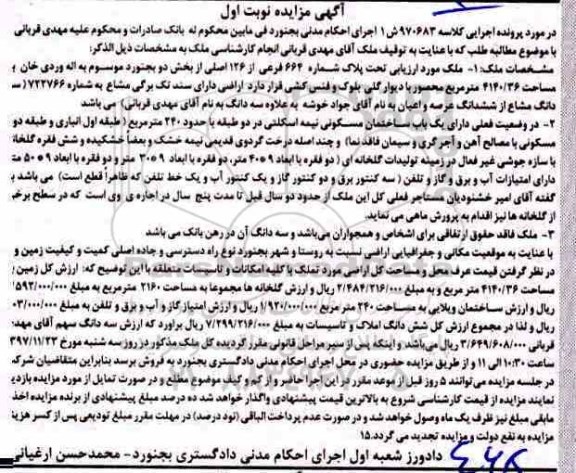 آگهی مزایده نوبت اول
در مورد پرونده اجرایی کلاسه ۹۷۰۶۸۳ ش ۱ اجرای احکام مدنی بجنورد فی مابین محکوم له بانک صادرات و محکوم علیه مهدی قربانی
با موضوع مطالبه طلب که با عنایت به توقیف ملک آقای مهدی قربانی انجام کارشناسی ملک به مشخصات ذیل الذکر:
مشخصات ملک: ۱- ملک مورد ارزیابی تحت پلاک شماره ۶۶۴ فرعی از ۱۲۶ اصلی از بخش دو بجنورد موسوم به اله وردی خان
مساحت ۴۱۴۰/۳۶ مترمربع محصور با دیوار گلی بلوک و فنس کشی قرار دارد اراضی دارای سند تک برگی مشاع به شماره ۷۲۲۷۶۶ (سه
دانگ مشاع از ششدانگ عرصه و اعیان به نام آقای جواد خوشه به علاوه سه دانگ به نام آقای مهدی قربانی) می باشد
۲- در وضعیت فعلی دارای یک باب ساختمان مسکونی نیمه اسکلتی در دو طبقه با حدود ۲۴۰ مترمربع (طبقه اول انباری و طبقه دو
مسکونی با مصالح آهن و آجر گری و سیمان فاقد نما) و چند اصله درخت گردوی قدیمی نیمه خشک و بعضا خشکیده و شش فقره گلخانه
با سازه جوشی غیر فعال در زمینه تولیدات گلخانه ای (دو فقره با ابعاد ۹*۴۰ متر، دو فقره با ابعاد ۹*۳۰ متر و دو فقره با ابعاد ۹*۵۰ مت
دارای امتیازات آب و برق و گاز و تلفن (سه کنتور برق و دو کنتور گاز و یک کنتور آب و یک خط تلفن که ظاهراً قطع است) می باشد
گفته آقای امیر خشنودیان مستاجر فعلی کل این ملک از حدود دو سال قبل تا مدت پنج سال در اجاره ی وی است که در سطح برخی
از گلخانه ها نیز اقدام به پرورش ماهی می نماید.
۳- ملک فاقد حقوق ارتفاقی برای اشخاص و همجواران می‌باشد و سه دانگ آن در رهن بانک می باشد
با عنایت به موقعیت مکانی و جغرافیایی اراضی نسبت به روستا و شهر بجنورد نوع راه دسترسی و جاده اصلی کمیت و کیفیت زمین و
در نظر گرفتن قیمت عرف محل و مساحت کل اراضی مورد تملک با کلیه امکانات و تاسیسات متعلقه با این توضیح که: ارزش کل زمین
مساحت ۴۱۴۰/۳۶ متر مربع و به مبلغ ۲/۴۸۴/۲۱۶/۰۰۰ ریال و ارزش گلخانه ها مجموعا به مساحت ۲۱۶۰ مترمربع به مبلغ ۵۹۲/۰۰۰/
ریال و ارزش ساختمان ویلایی به مساحت ۲۴۰ متر مربع ۱/۹۲۰/۰۰۰/۰۰۰ ریال و ارزش امتیاز گاز و آب و برق و تلفن به مبلغ
ریال و لذا در مجموع ارزش کل شش دانگ املاک و تاسیسات به مبلغ ۷/۲۹۹/۲۱۶/۰۰۰ ریال برآورد که ارزش سه دانگ سهم آقای مهدی
قربانی ۳/۶۴۹/۶۰۸/۰۰۰ ریال می‌باشد و اینکه پس از سیر مراحل قانونی مقرر گردیده کل ملک مذکور در روز سه شنبه مورخ ۳۹۷/۱۱/۲۳
ساعت ۱۰:۳۰ الی ۱۱ و از طریق مزایده حضوری در محل اجرای احکام مدنی دادگستری بجنورد به فروش برسد بنابراین متقاضیان شرکت
در جلسه مزایده می‌توانند ۵ روز قبل از موعد مقرر در این اجرا حاضر و از کم و کیف موضوع مطلع و در صورت تمایل از مورد مزایده بازدید
نمایند مزایده از قیمت کارشناسی شروع به بالاترین قیمت پیشنهادی واگذار خواهد شد ده درصد مبلغ پیشنهادی از برنده مزایده اخذ
مابقی مبلغ نیز ظرف یک ماه وصول خواهد شد و در صورت عدم پرداخت الباقی (نود درصد) در مهلت مقرر مبلغ تودیعی پس از کسر هزینه
مزایده به نفع دولت و مزایده تجدید می گردد.۱۵
دادورز شعبه اول اجرای احکام مدنی دادگستری بجنورد - محمدحسن ارغیانی